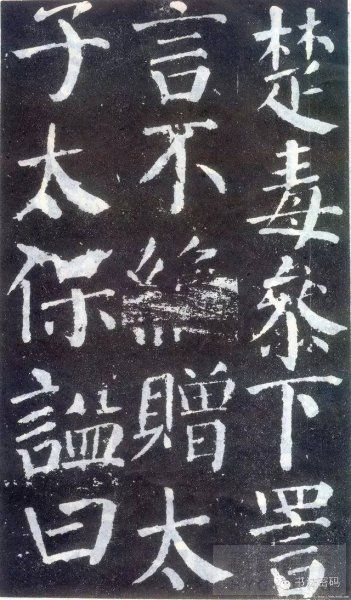 楚毒參下詈
言不絶贈太
子太保謚曰
书法密码